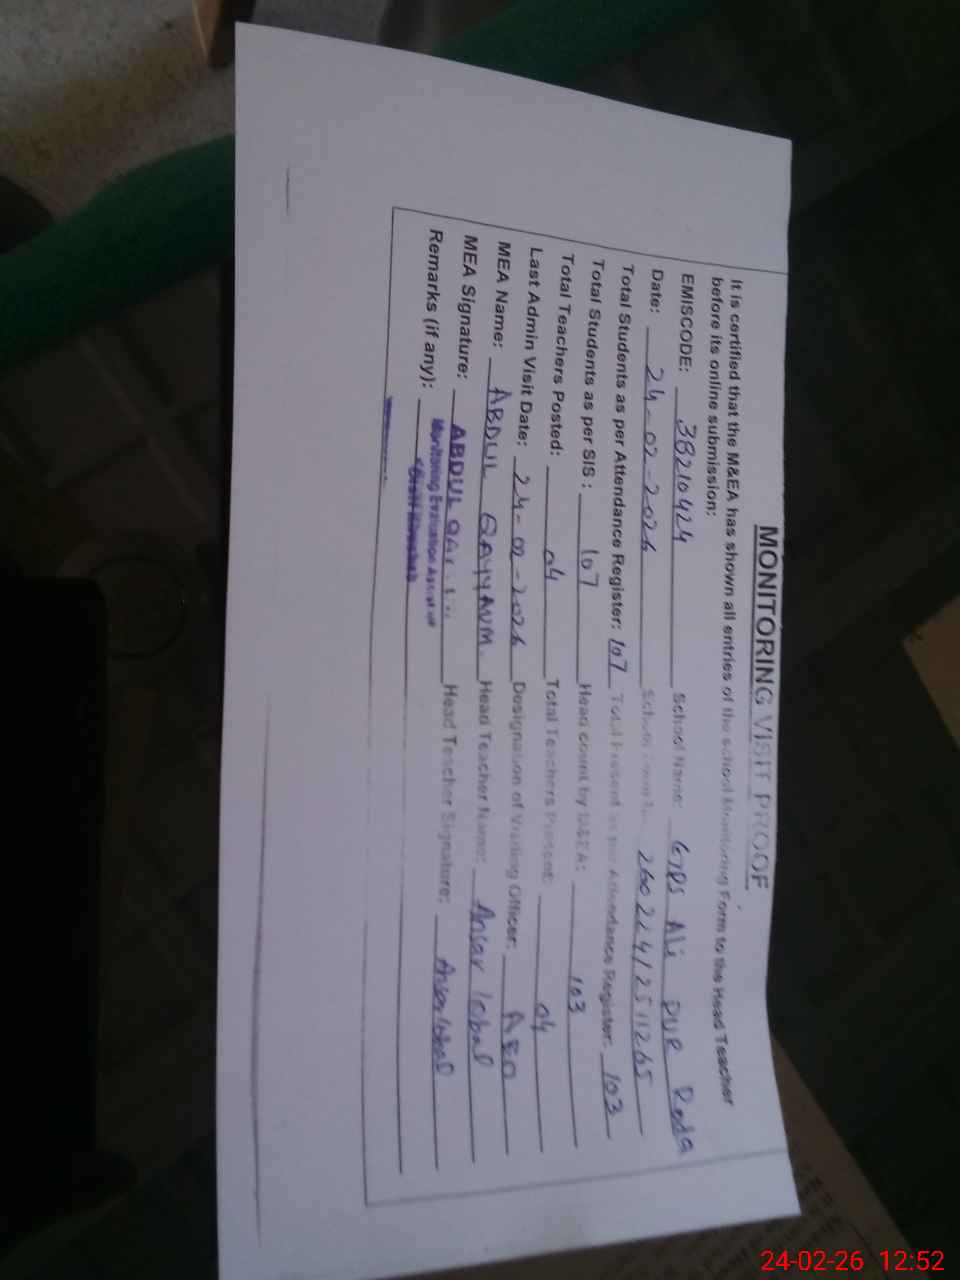 MONITORING VISIT PROOF
It is certified that the M&EA has shown all entries of the school Monitoring Form to the Head Teacher
before its online submission:
EMISCODE: 38210424 School Name: GPS Ali PUR Roda
Date: 24-02-2026 School 26022412511265
Total Students as per Attendance Register: 107 Total Present as per Attendance Register: 103
Total Students as per SIS: 107 Head count by M&EA: 103
Total Teachers Posted: 04 Total Teachers Present: 04
Last Admin Visit Date: 24-02-2026 Designation of Visiting Officer: AEO
MEA Name: ABDUL QAYYAUM. Head Teacher Name: Ansar Iqbal
MEA Signature: ABDUL Head Teacher Signature: Ansar Iqbal
Monitoring Evaluation
Remarks (if any):
24-02-26 12:52